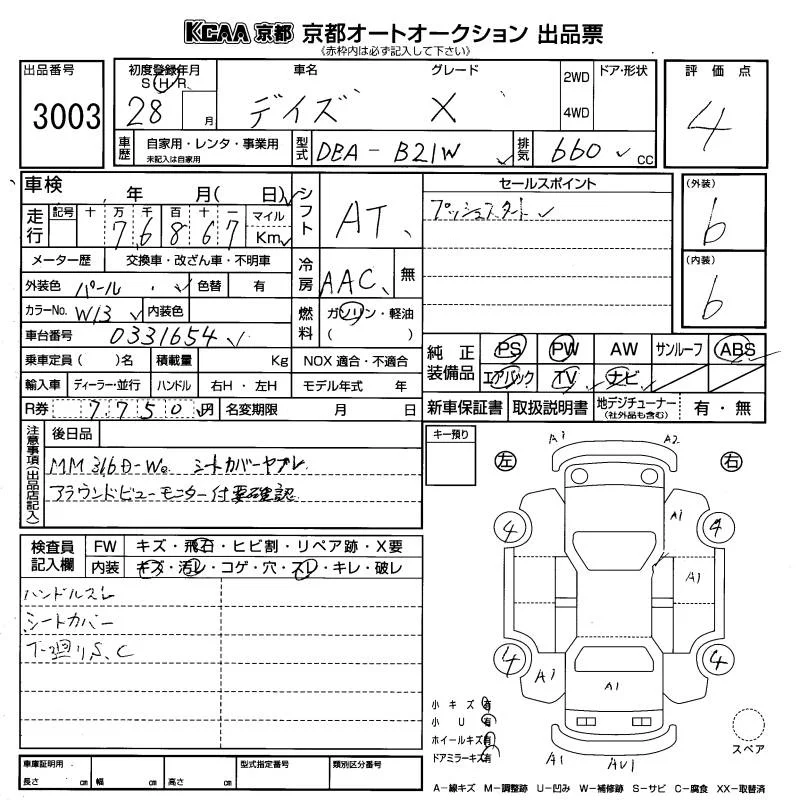 KCAA 京都 京都オートオークション 出品票
《赤枠内は必ず記入して下さい》
出品番号
3003
初度登録年月
S H R
28 月
車名
デイズ
グレード
X
2WD
4WD
ドア・形状
評価点
4
車歴
自家用・レンタ・事業用
未記入は自家用
型式
DBA-B21W
排気
660 cc
車検
年 月( 日)
シフト
AT
セールスポイント
プッシュスタート
(外装)
6
(内装)
6
走行
記号 十 万 千 百 十 一 マイル
7 6 8 6 7 Km
メーター歴 交換車・改ざん車・不明車
冷房
AAC 無
外装色 パール 色替 有
カラーNo. W13 内装色
燃料
ガソリン・軽油
( )
車台番号 0331654
乗車定員( )名 積載量 Kg NOX 適合・不適合
輸入車 ディーラー・並行 ハンドル 右H・左H モデル年式 年
R券 7750円 名変期限 月 日
純正装備品
PS PW AW サンルーフ ABS
エアバック TV ナビ
新車保証書 取扱説明書 地デジチューナー(社外品も含む) 有・無
注意事項(出品店記入)
後日品
MM316D-W シートカバーヤブレ
アラウンドビューモニター付要確認
キー預り
左
右
A1
A2
A1
A1
4
4
4
4
A1
A1
A1
AU1
検査員記入欄
FW キズ・飛石・ヒビ割・リペア跡・X要
内装 キズ・汚レ・コゲ・穴・スレ・キレ・破レ
ハンドルスレ
シートカバー
下廻りS、C
小キズ 有
小U 有
ホイールキズ 有
ドアミラーキズ 有
スペア
車庫証明用
長さ cm 幅 cm 高さ cm
型式指定番号
類別区分番号
A-線キズ M-調整跡 U-凹み W-補修跡 S-サビ C-腐食 XX-取替済